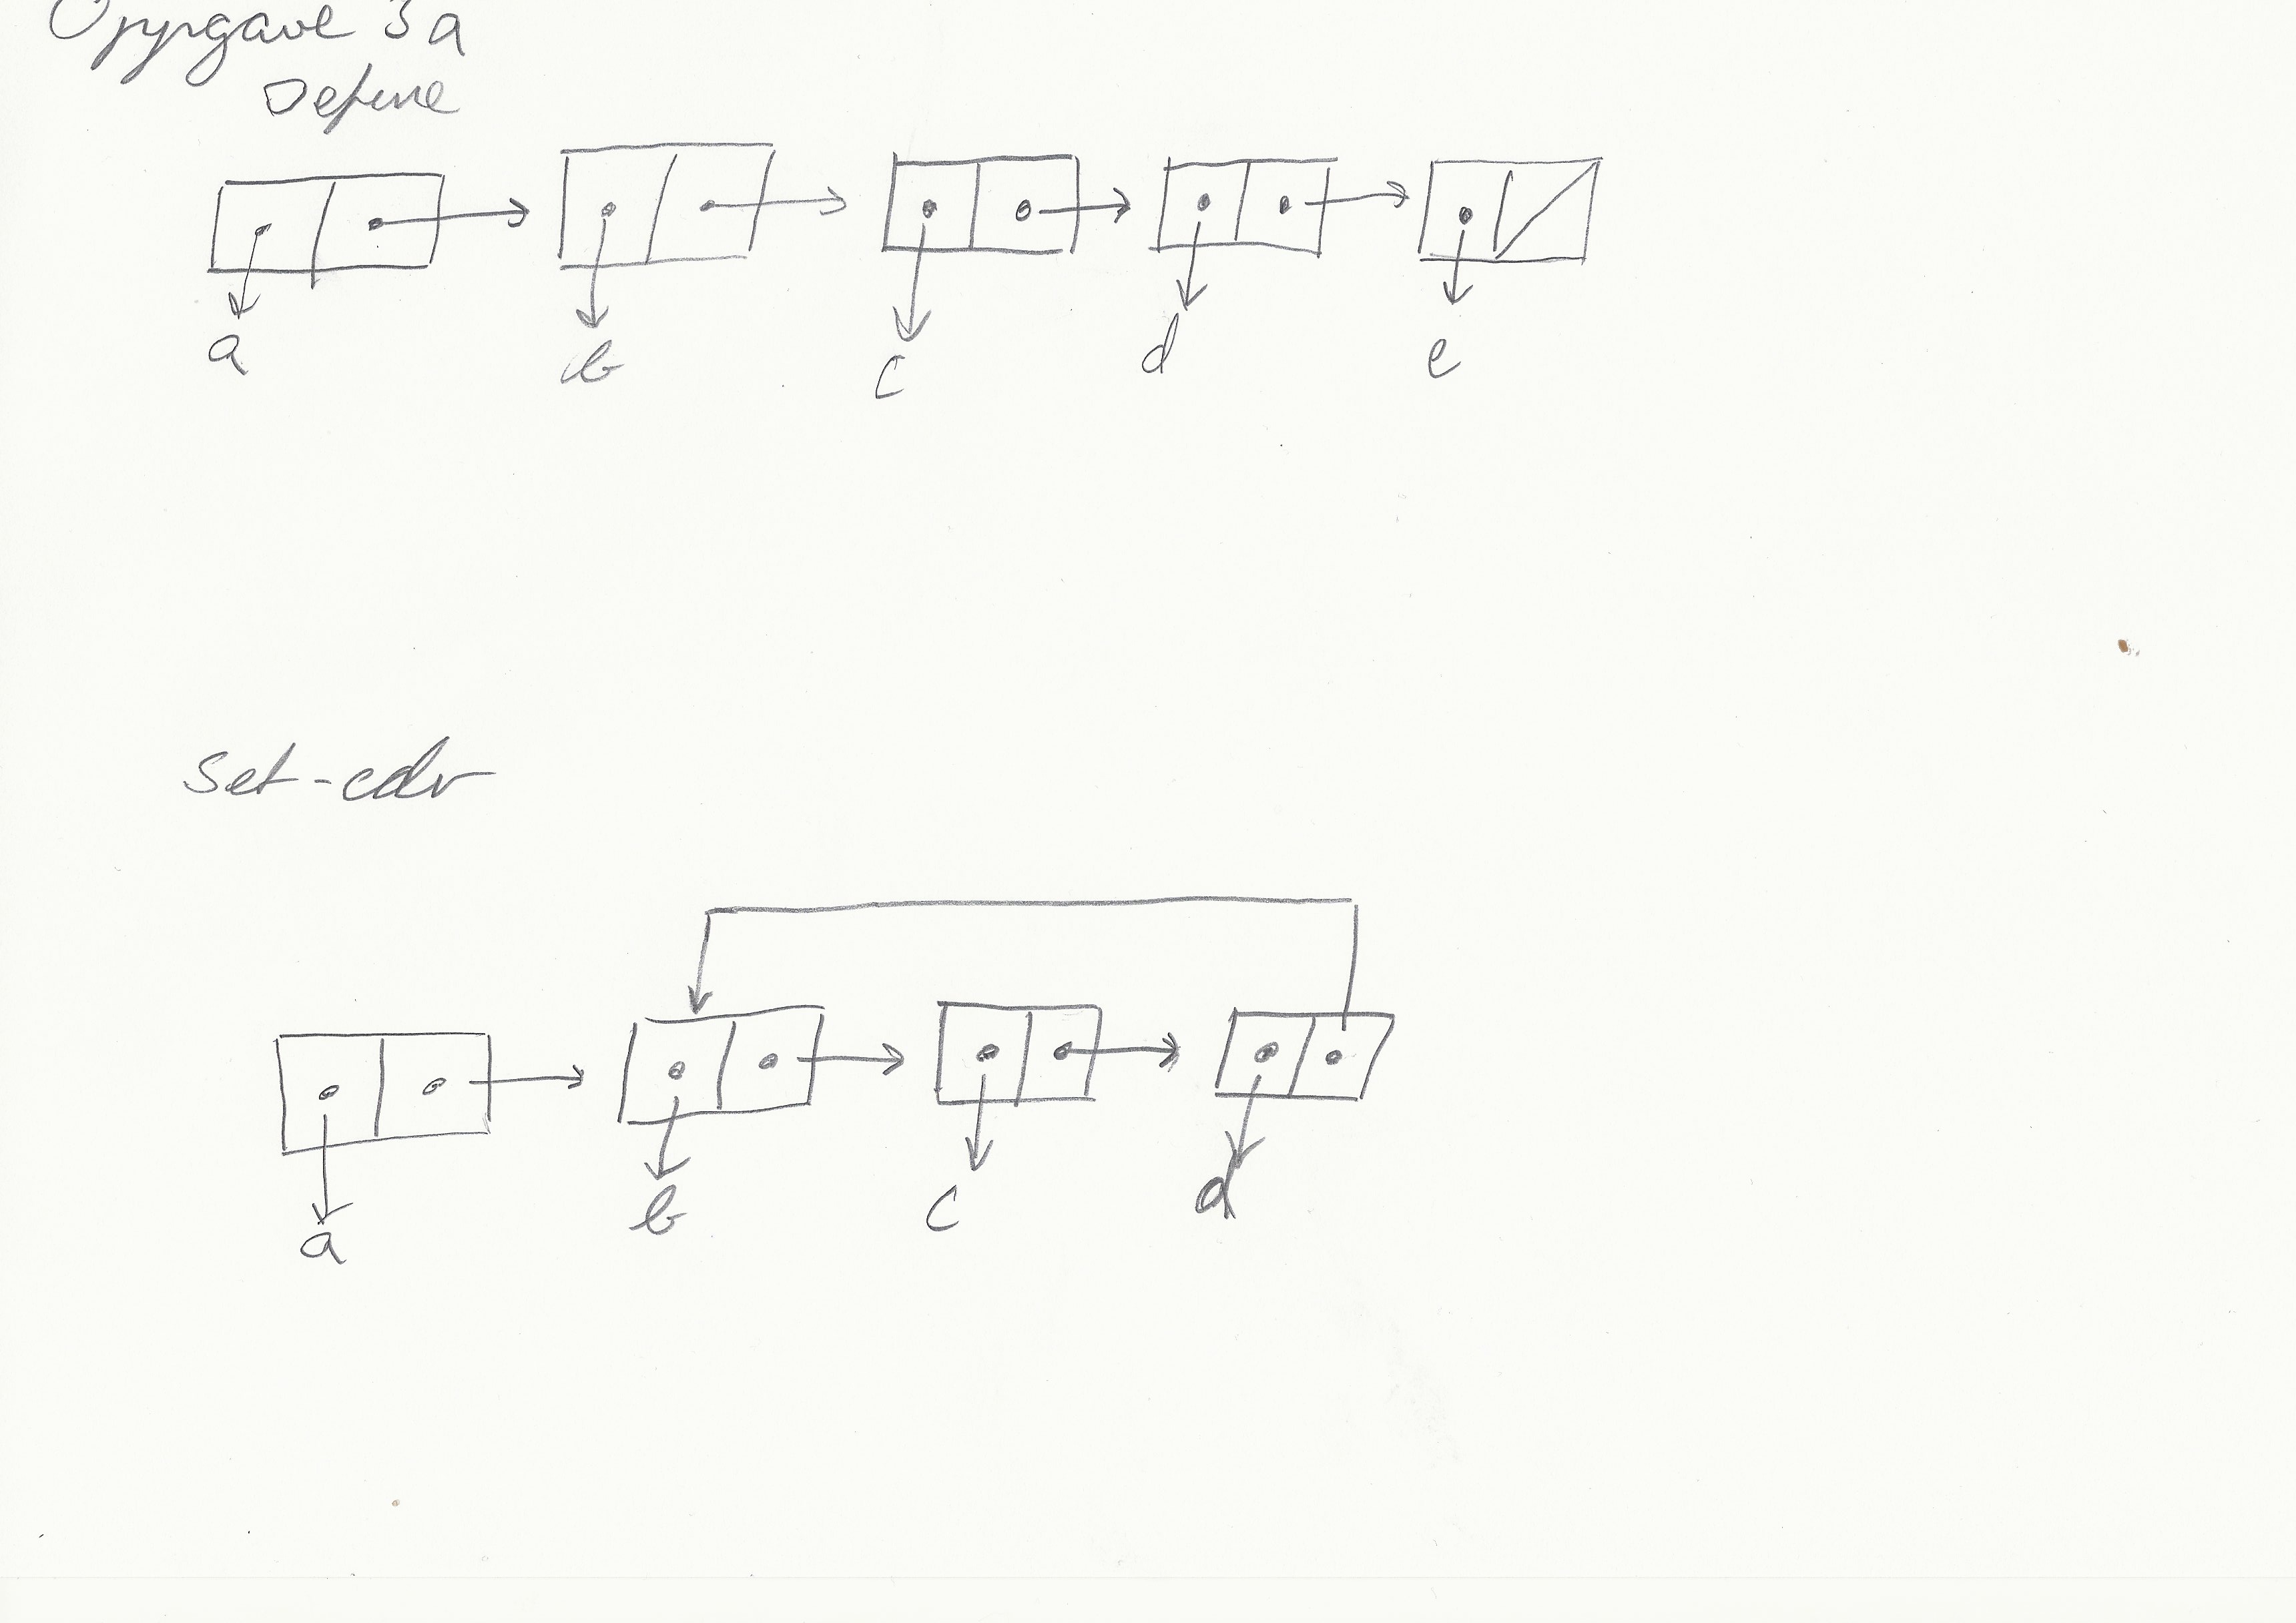 Oppgave 3a
Define
a b c d e
set-cdr
a b c d